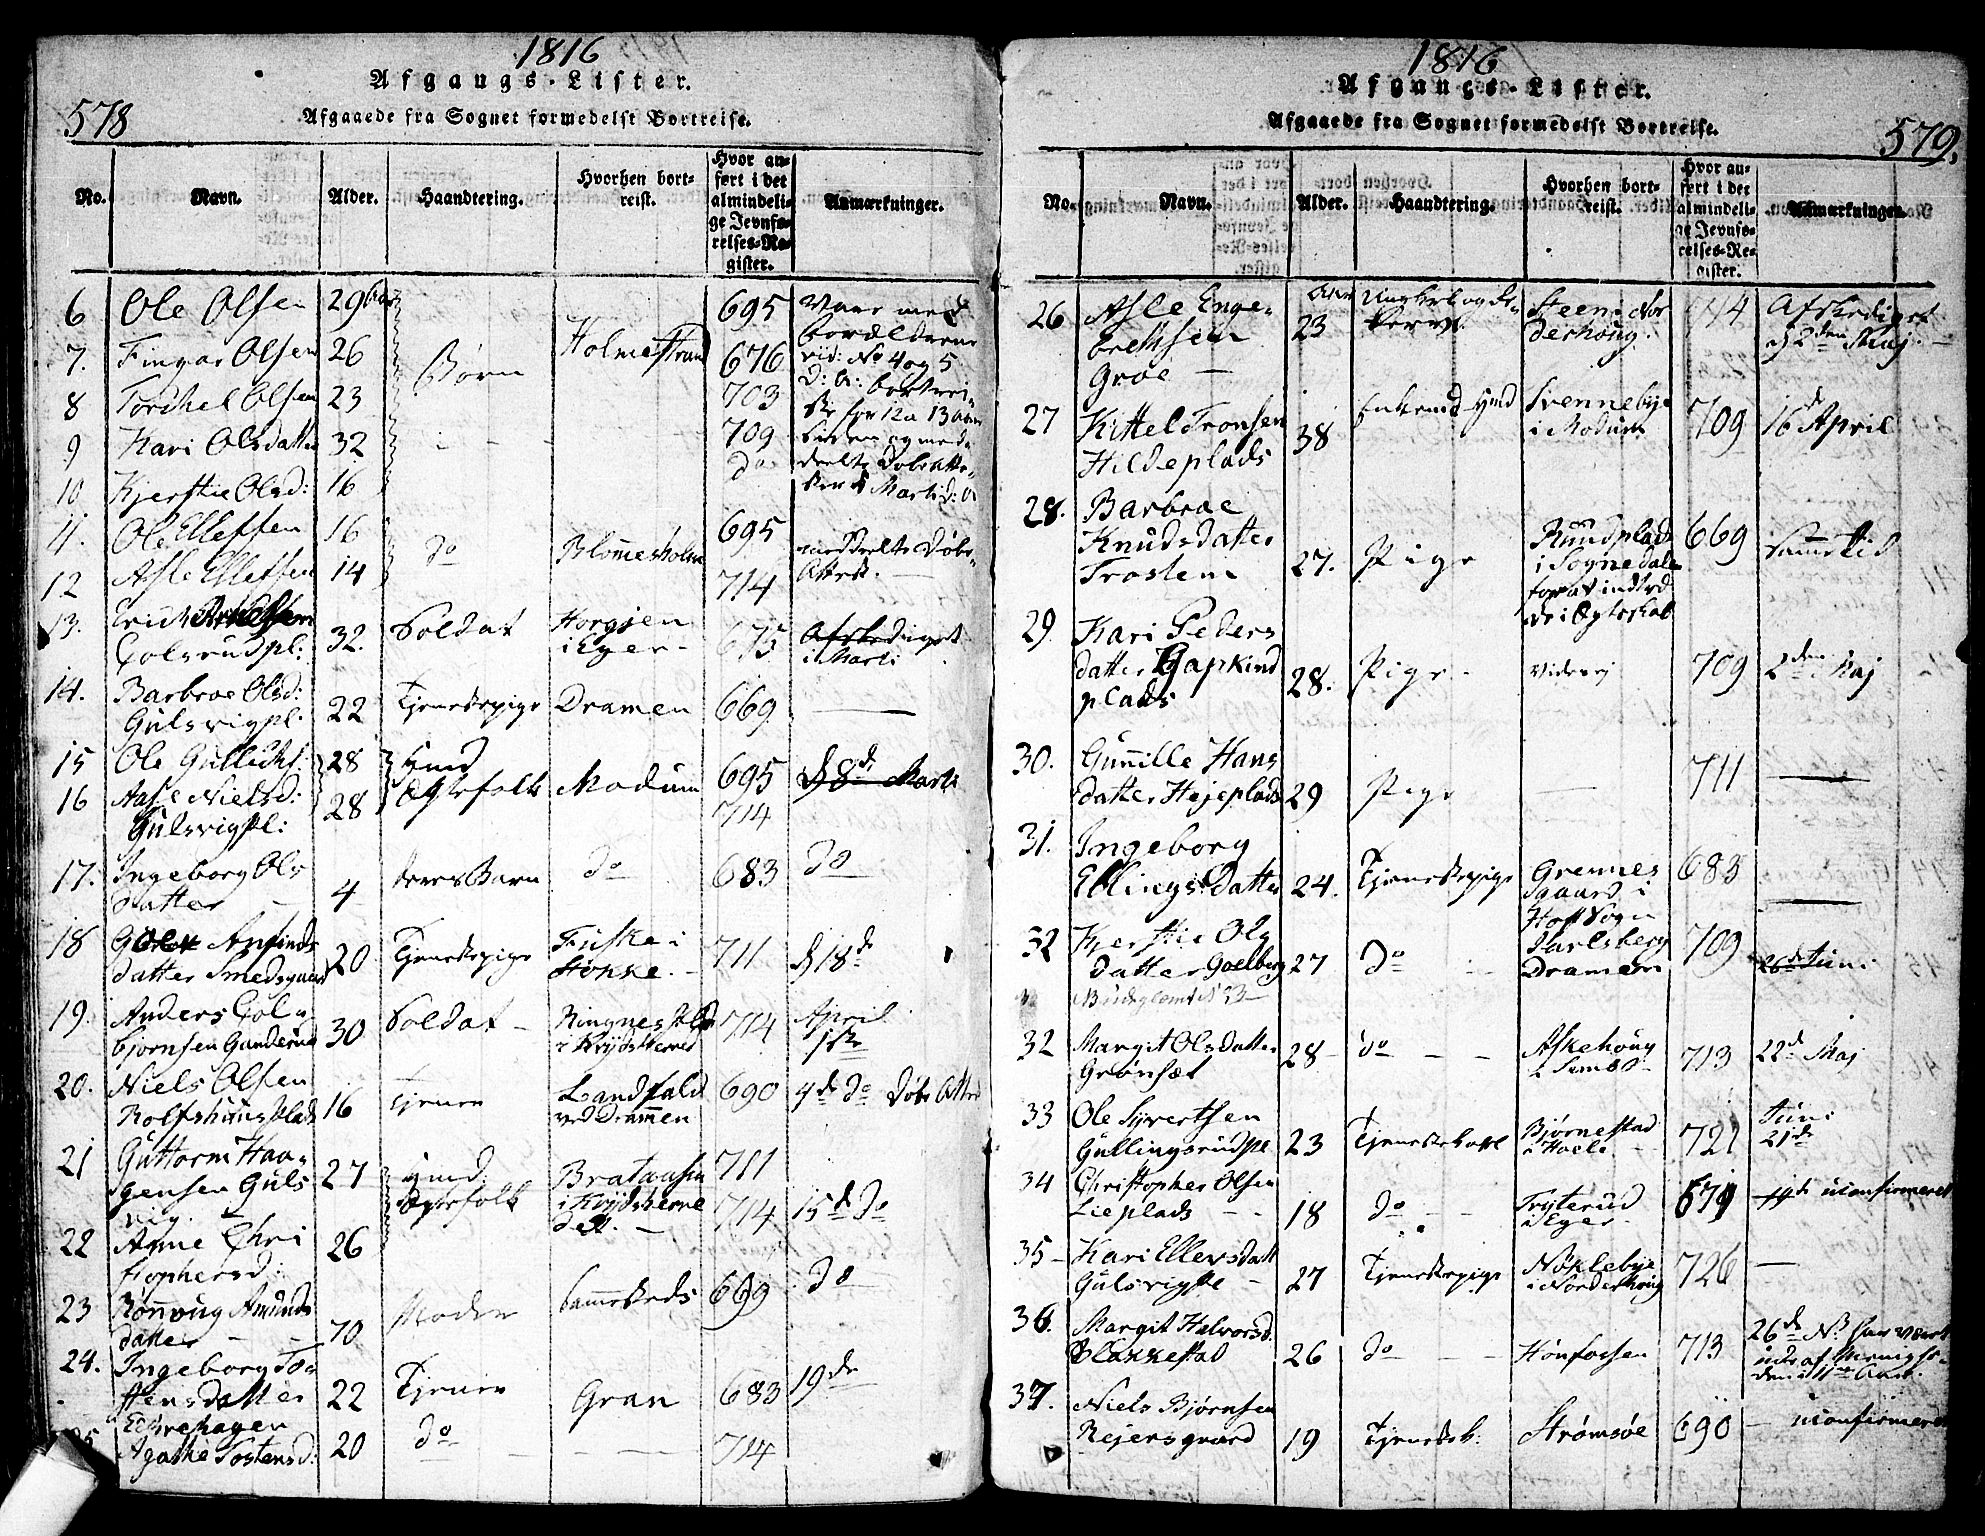 1816
Afgangs-Lister.
578
Afgaaede fra Sognet formedelst Bortreise.
No. Navn. Alder. Haandtering. Hvorhen bortreist. Hvor anført i det almindelige Jevnførelses-Register. Anmærkninger.
6 Ole Olsen 29 695
7. Fingar Olsen 26 Børn Holmestrand 676
8 Torchel Olsen 23 703
9 Kari Olsdatter 32 709
10 Kjerstie Olsd: 16 do
Ole Ellefsen 16 do Blommesholm 695
12 Asle Ellefsen 14 714
13. Erich
Golsrudpl: 32. Soldat Horgjen i Eger 675 Afskediget i Marti
14. Barbroe Olsd:
Gulsvigpl: 22 Tjenestepige Dramen 669 —
15 Ole Gullichs: 28 Huusmd Modum 695 d 8de Marti
16 Aase Nielsd:
Gulsvigpl: 28 Ægtefolk 714
17. Ingeborg Ols
datter 4 deres Barn do 683 do
18 Anfinds
datter Smedsgaard 20 Tjenestepige Fuske i Hokke 711 d 18de
19. Anders Col
bjørnsen Ganderud 30 Soldat Ringnes 714 April 1ste
20. Niels Olsen
Rolfshuus Plads 16 Tjener Landfald ved Drammen 690 4de do Døbe Attest
21 Guttorm Haa-
gensen Guls
vig 27 Huusmd. Ægtefolk Brataasen i Krydsherred 711
22 Anne Chri
stophersd: 26 714 15de do
23 Rønnoug Amunds
datter 70 Moder sammesteds 699 do
24. Ingeborg To-
stensdatter
Echrehagen 22 Tjener Gran 683 19de
25 Agathe Tostensd: 20 do 714
1816
Afgangs-Lister.
579.
Afgaaede fra Sognet formedelst Bortreise.
No. Navn. Alder. Haandtering. Hvorhen bortreist. Hvor anført i det almindelige Jevnførelses-Register. Anmærkninger.
26 Asle Enge-
brethsen
Groe 23 Ungkarl og Steen i Norderhoug. 714 Afskediget d 2den Maj.
27 Kittel Tronsen
Hildeplads 38 Svennebye i Modum 709 16de April
28. Barbroe
Knudsdatter
Trostem 27. Pige Ruudplads i Sognedalen for at indtræde i Ægteskab 669 samme tid
29. Kari Peders
datter Gapkind
plads 28. Pige 709 2den Maj
30. Gunnille Hans
datter Hejeplads 29 Pige — 711 —
31. Ingeborg
Ellings Datter 24. Tjenestepige Grennes gaard i Hoff Sogn Jarlsberg 683 —
32 Kjerstie Ols
datter Goelberg 27 do Dramen 709 26de Juni
32 Margit Olsdatter
Grønsæt 28 do Askehoug i Semb 713 22de Maj
33 Ole Syvertsen
Gullingsrudpl 23 Tjenestekarl Bjørnestad i Hoele 721 Juni 21de
34 Christopher Olsen
Lieplads 18 do Tryterud i Eger 679 uconfirmeret
35 Kari Ellevsdatt
Gulsvigpl 27 Tjenestepige Nøklebye i Norderhoug 726 —
36. Margit Halvorsd.
Blakkestad 26 do Hønfossen 713 26de NB har været ude af Menigheden i 11te Aar.
37. Niels Bjørnsen
Rejersgaard 19 Tjenestek: Strømsøe 690 — uconfirmeret